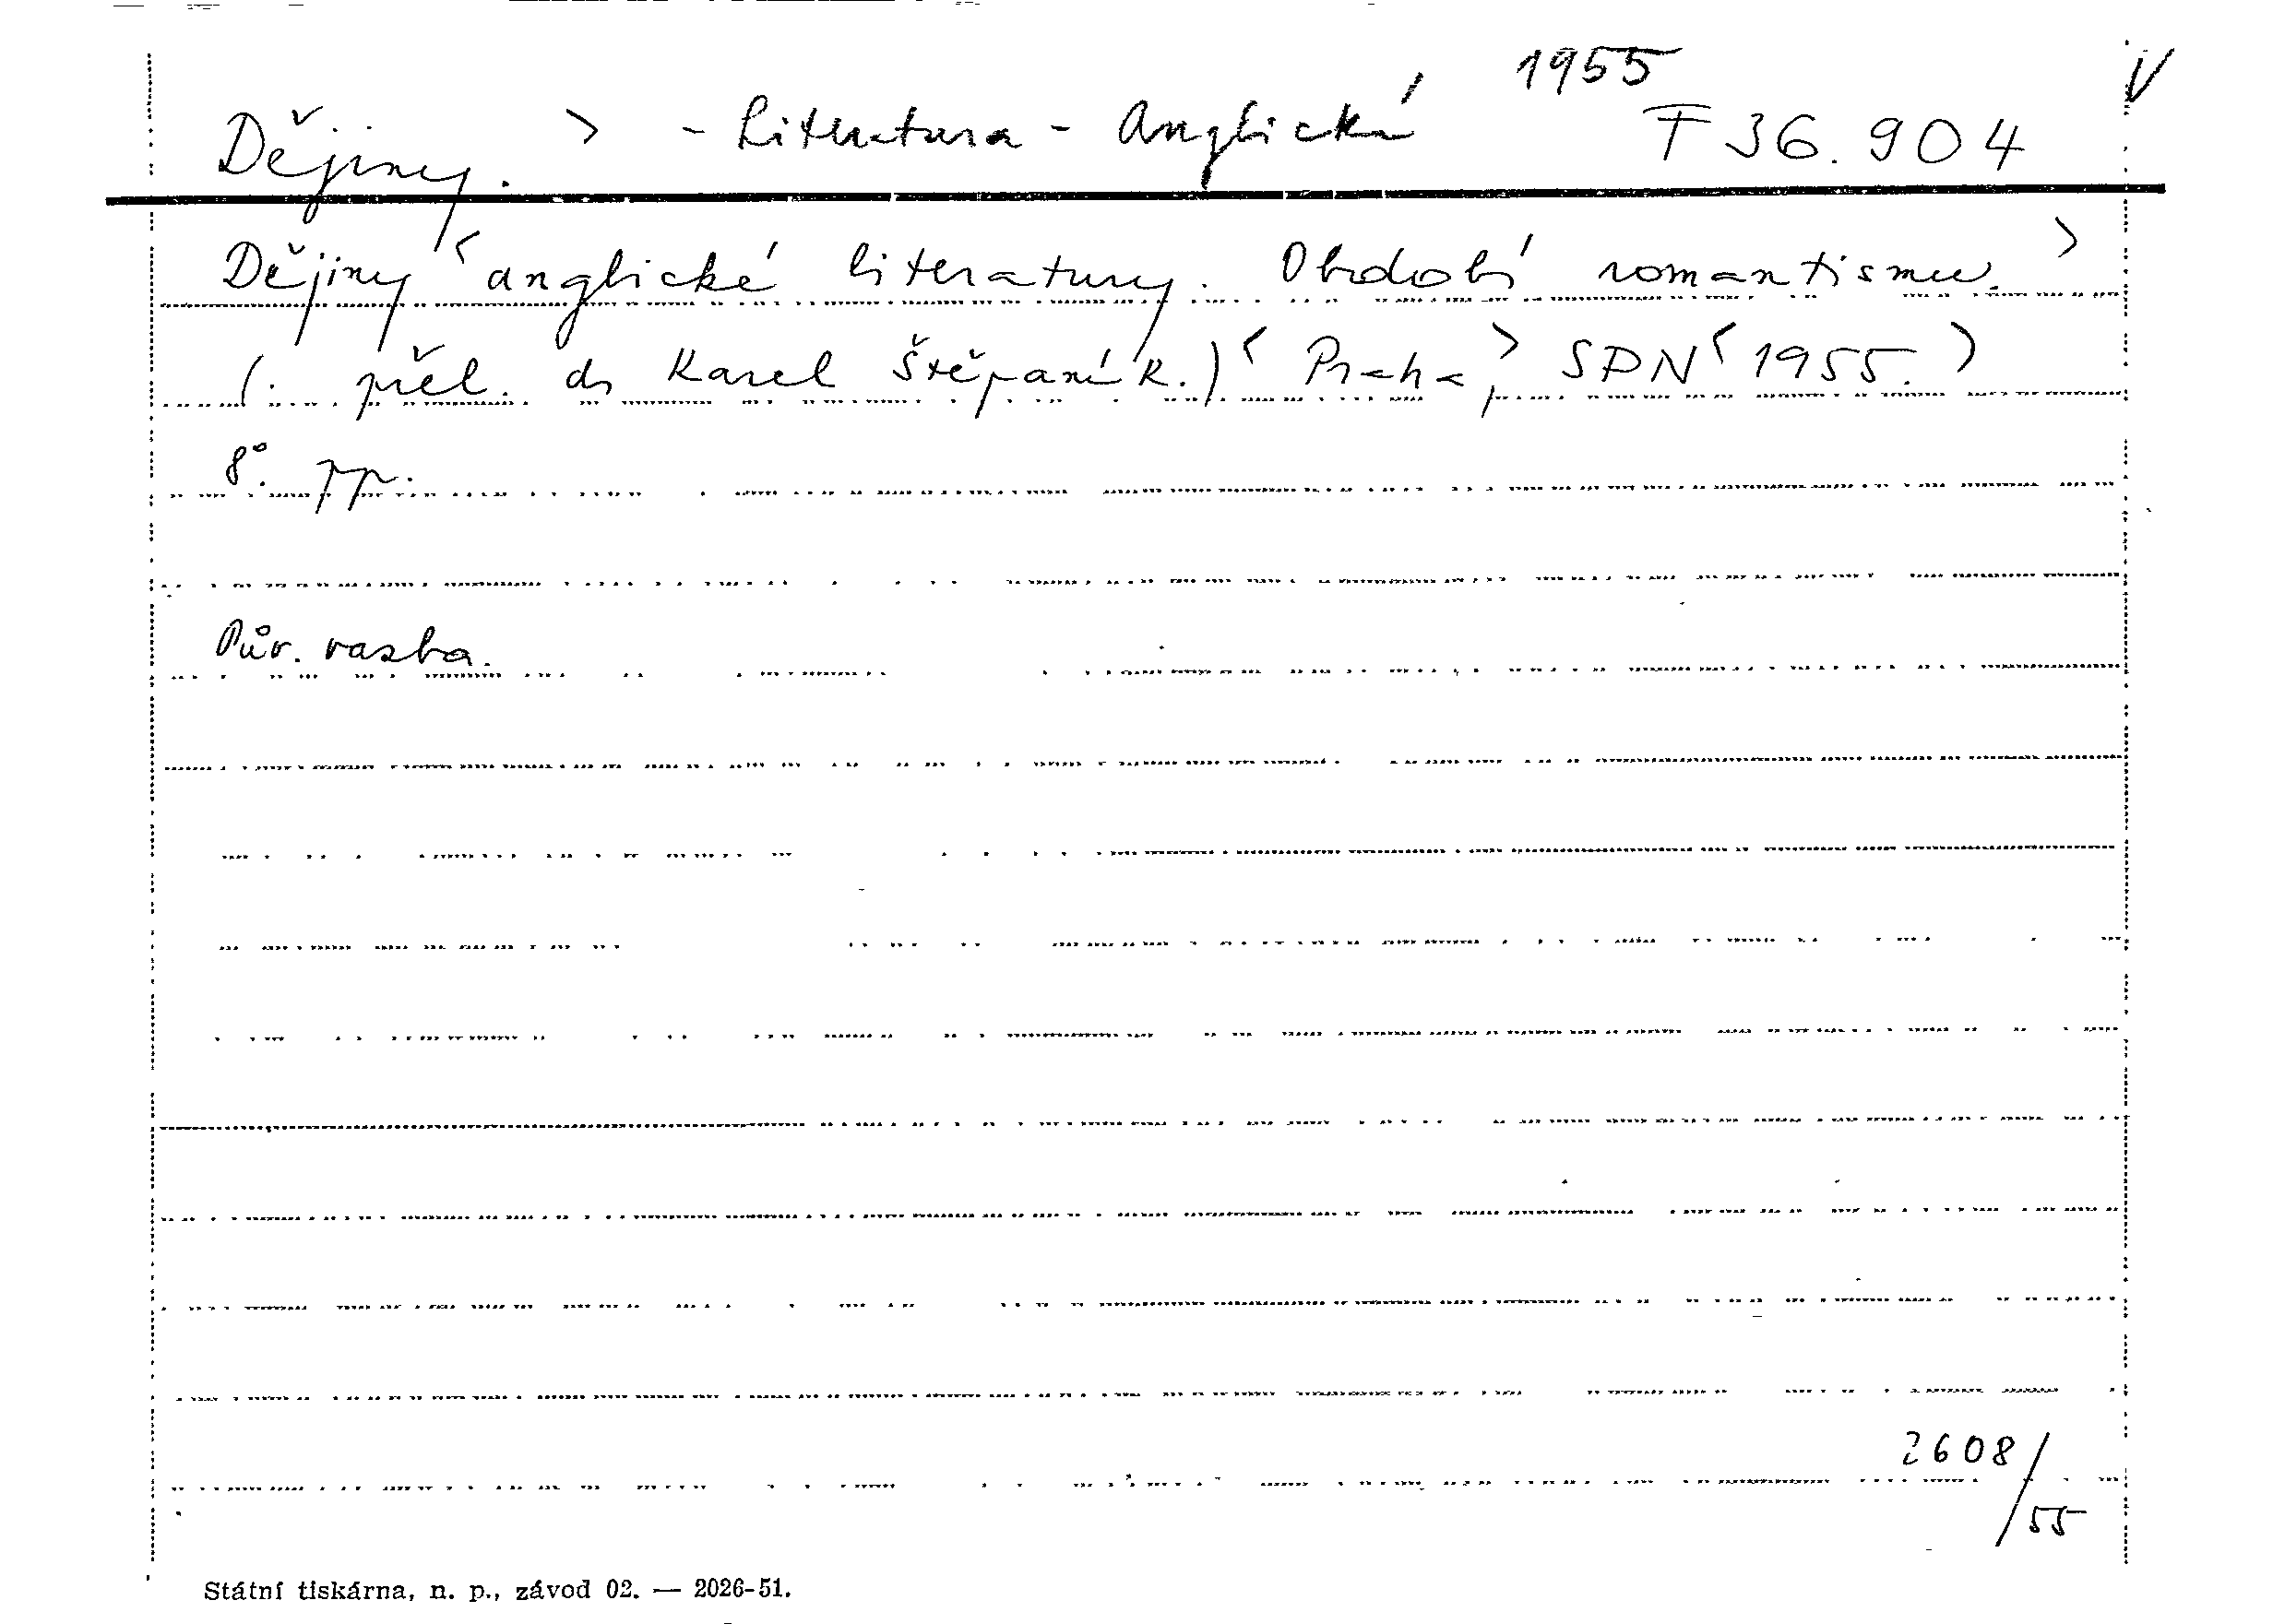 1955 V
Dějiny. > - Literatura - Anglická F 36.904
Dějiny < anglické literatury. Období romantismu. >
(. přel. dr Karel Štěpaník.) < Praha, > SPN < 1955. )
8°. pp.
Pův. vazba.
2608/55
Státní tiskárna, n. p., závod 02. — 2026-51.